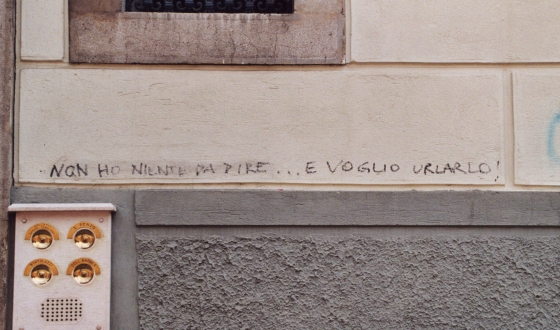 NON HO NIENTE DA DIRE... E VOGLIO URLARLO!